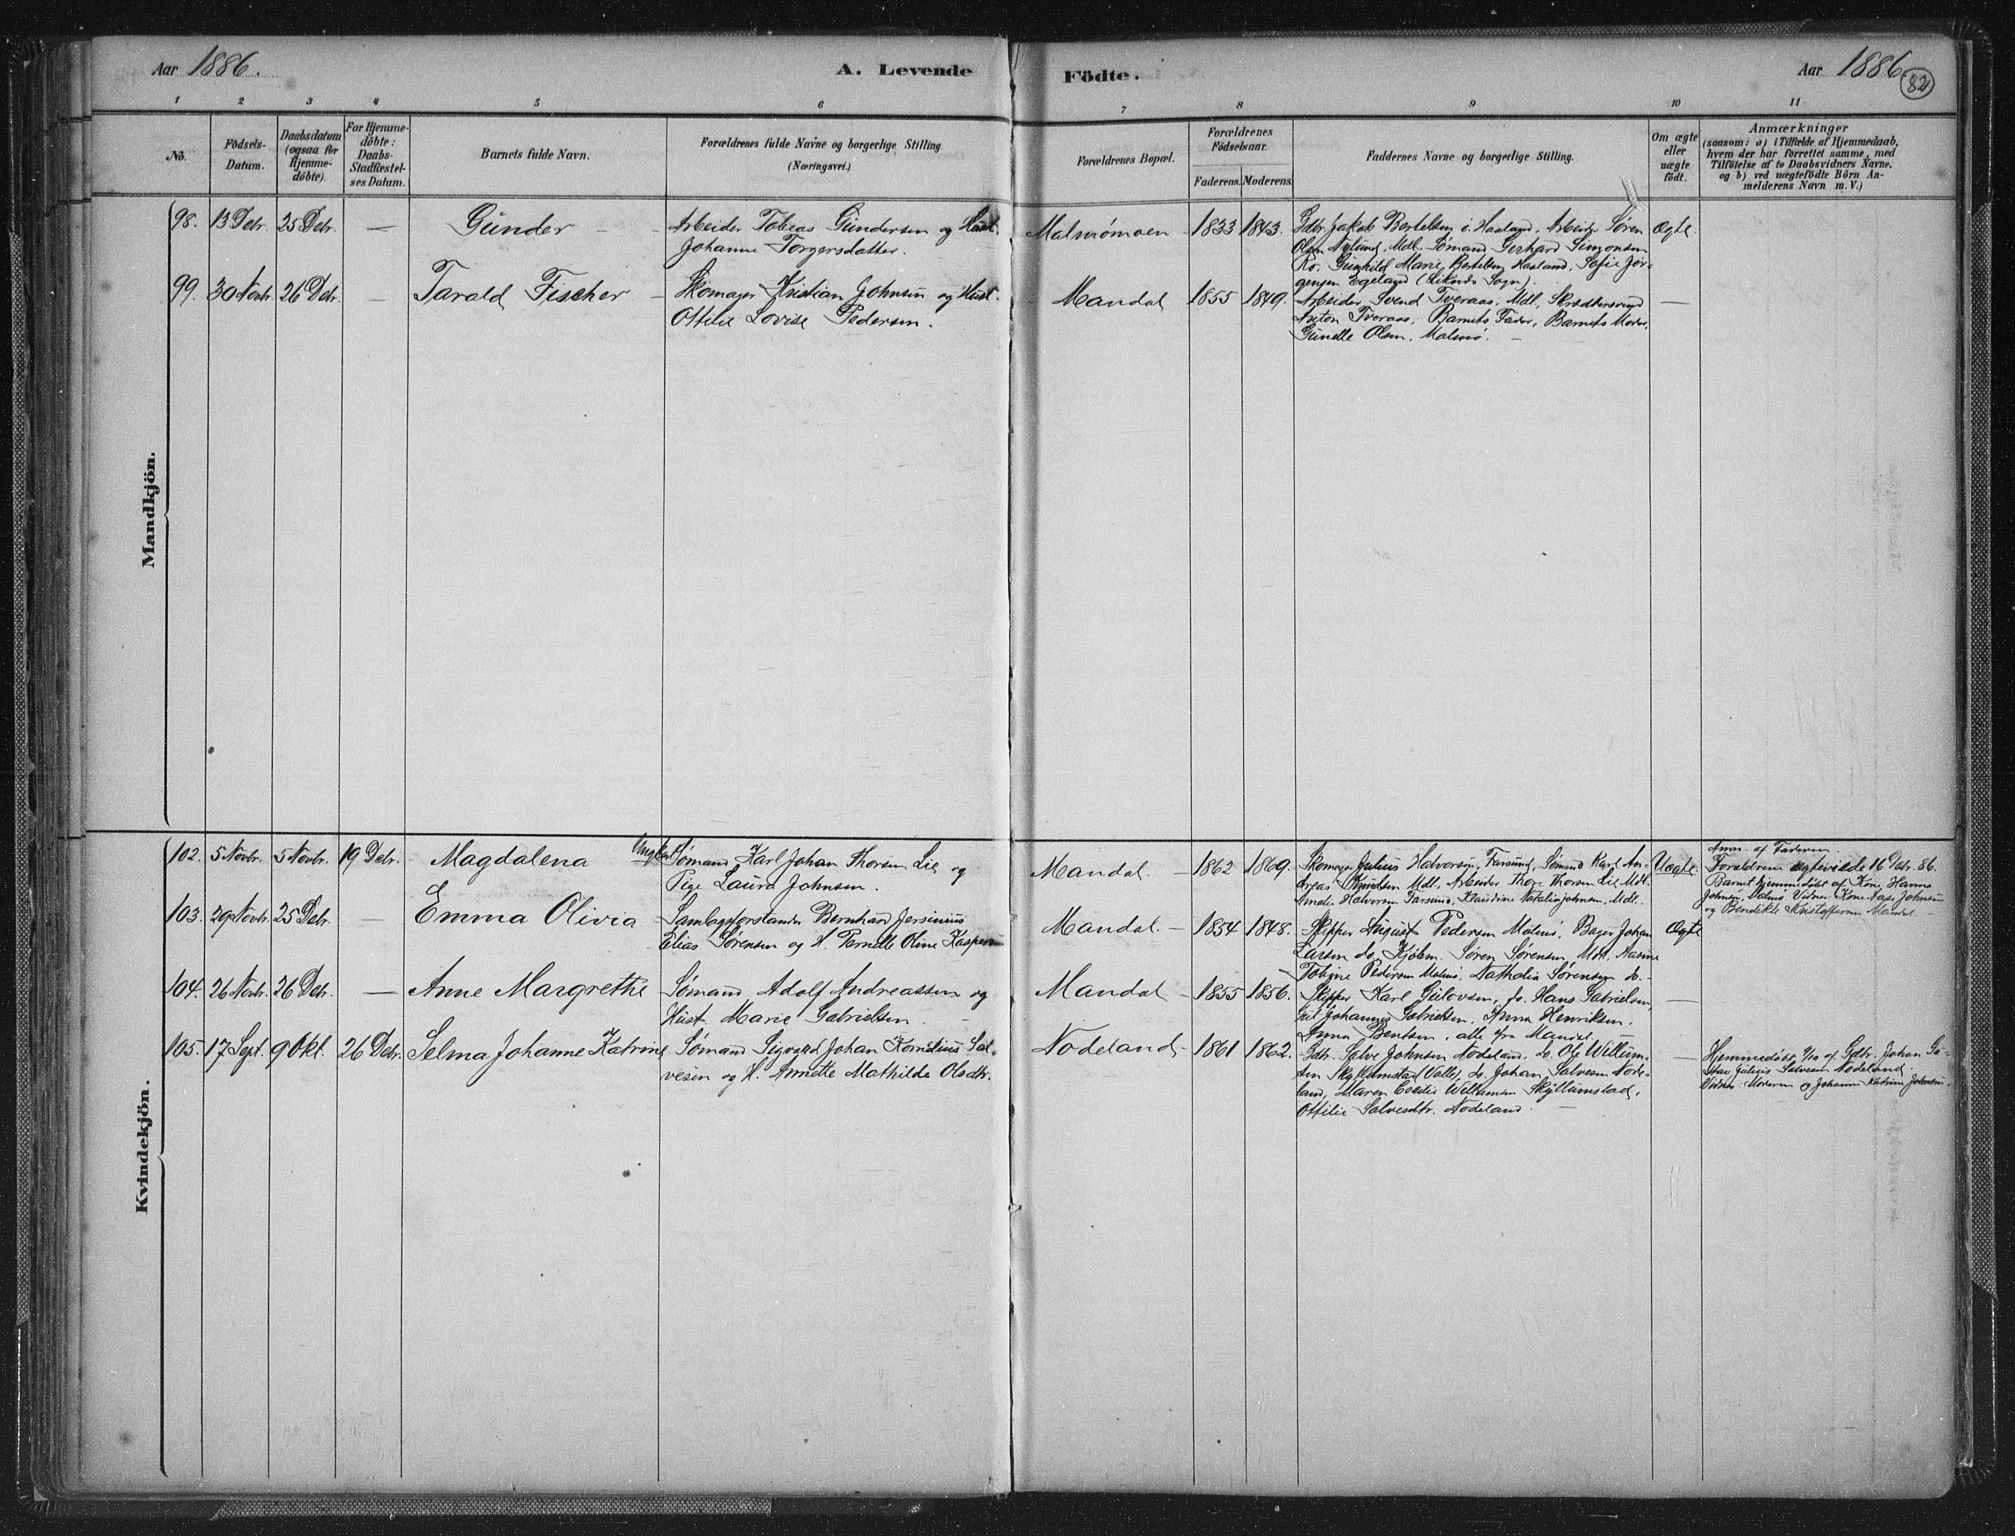 Aar 1886.
A. Levende
Födte.
Aar 1886.
82
1 2 3 4 5 6 7 8 9 10 11
No.
Födsels-
Datum.
Daabsdatum
(ogsaa for
Hjemme-
döbte).
For Hjemme-
döbte:
Daabs-
Stadfæstel-
ses Datum.
Barnets fulde Navn.
Forældrenes fulde Navne og borgerlige Stilling.
(Næringsvei.)
Forældrenes Bopæl.
Forældrenes
Födselsaar.
Faderens. Moderens.
Faddernes Navne og borgerlige Stilling.
Om ægte
eller
uægte
födt.
Anmærkninger
(saasom: a) i Tilfælde af Hjemmedaab,
hvem der har forrettet samme, med
Tilföielse af to Daabsvidners Navne,
og b) ved uægtefödte Börn An-
melderens Navn m. V.)
Mandkjön.
98. 13 Debr. 25 Debr. — Gunder — Arbeider Tobias Gundersen og Hust.
Johanne Torgersdatter.
Malmømoen 1833 1843. Gdbr. Jakob Bertelsen i Haaland, Arbeider Søren Ægte.
Olsen Nylund, Mdl. Sømand Gerhard Simonsen
Ro, Gunhild Marie Bertelsen Haaland, Sofie Jør-
gensen Egeland (Liknes Sogn).
99. 30 Novbr. 26 Debr. — Tarald Fischer — Skomager Kristian Johnsen og Hust.
Ottilie Lovise Pedersen.
Mandal 1855 1849. Arbeider Svend Tveraas, Mdl, Skræddersvend —
Anton Tveraas, Barnets Fader, Barnets Moder,
Gunelle Olsen, Malmø. —
Kvindekjön.
102. 5 Novbr. 5 Novbr. 19 Debr. Magdalena Sømand Karl Johan Thorsen Lie og
Pige Laura Johnsen.
Mandal. — 1862 1869. Skomager Julius Halvorsen, Farsund, Sømand Karl An- Uægte.
dreas Knudsen Mdl. Arbeider Thore Thorsen Lie Mdl.
Amalie Halvorsen Farsund, Klaudine Natalia Johnsen, Mdl.
Anm. af Faderen.
Forældrene ægteviede 16 Debr. 86.
Barnet hjemmedøbt af Kone Hanna
Johnsen, Malmø. Vidner: Kone Johnsen
og Bendikte Kristoffersen Mandal. —
103. 29 Novbr. 25 Debr. — Emma Olivia Samlagsforstander Bernhard Jersinius
Elias Sørensen og H. Pernelle Oline Kaspersen
Mandal. — 1854 1848. Skipper August Pedersen Malmø, Bager Johan Ægte
Larsen do, Kjøbm. Søren Sørensen Mdl.
Tobine Pedersen Malmø, Nathalia Sørensen do. —
104. 26 Novbr. 26 Debr. — Anne Margrethe Sømand Adolf Andreassen og
Hust. Marie Gabrielsen. —
Mandal — 1855 1856. Skipper Karl Gulovsen, do. Hans Gabrielsen, —
Johannes Gabrielsen, Anna Henriksen,
Anna Bentsen, alle fra Mandal.
105. 17 Sept. 9 Okt. 26 Debr. Selma Johanne Katrine Sømand Sigvard Johan Kornelius Sal-
vesen og H. Annette Mathilde Olsdtr.
Nodeland 1861 1862. Gdbr. Salve Johnsen Nodeland. do. Ole Willum- —
sen Skyllumstad Valle, do Johan Salvesen Node-
land, Maren Cecilie Willumsen Skyllumstad,
Ottilie Salvesdtr. Nodeland. —
Hemmedøbt 9/10 af Gdbr. Johan Gu-
stav Julius Salvesen Nodeland.
Vidner: Moderen og Johanne Katrine Johnsen.